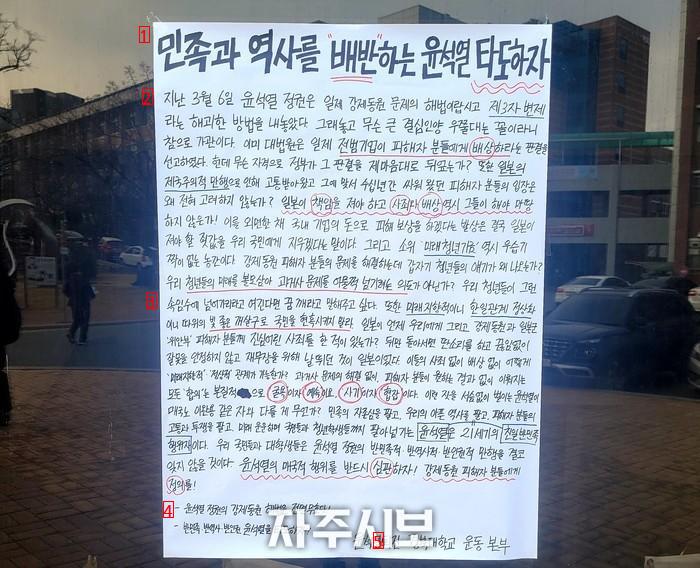 민족과 역사를 "배반"하는 윤석열 타도하자
지난 3월 6일 윤석열 정권은 일제 강제동원 문제의 해법이랍시고 제3자 변제
라는 해괴한 방법을 내놓았다. 그래놓고 무슨 큰 결심인양 우쭐대는 꼴이라니
참으로 가관이다. 이미 대법원은 일제 전범기업이 피해자 분들에게 배상하라는 판결을
선고하였다. 헌데 무슨 자격으로 정부가 그 판결을 제마음대로 뒤엎는가? 또한 일본의
제국주의적 만행으로 인해 고통받아왔고 그에 맞서 수십년간 싸워 왔던 피해자 분들의 입장은
왜 전혀 고려하지 않는가? 일본이 책임을 져야 하고 사죄와 배상 역시 그들이 해야 마땅
하지 않은가! 이를 외면한 채 국내 기업의 돈으로 피해 보상을 하겠다는 발상은 결국 일본이
져야 할 죗값을 우리 국민에게 지우겠다는 말이다. 그리고 소위 '미래청년기금' 역시 우습기
짝이 없는 농간이다. 강제동원 피해자 분들의 문제를 해결하는데 갑자기 청년들의 얘기가 왜 나오는가?
우리 청년들의 미래를 볼모삼아 과거사 문제를 어물쩍 넘기려는 의도가 아닌가? 우리 청년들이 그런
속임수에 넘어가리라고 여긴다면 꿈 깨라고 말해주고 싶다. 또한 미래지향적이니 한일관계 정상화
이니 따위의 빛 좋은 개살구로 국민을 현혹시키지 말라. 일본이 언제 우리에게 그리고 강제동원과 일본군
'위안부' 피해자 분들께 진심어린 사죄를 한 적이 있는가? 뒤만 돌아서면 딴소리를 하고 끊임없이
잘못을 인정하지 않고 재무장을 위해 날뛰던 것이 일본이었다. 이들의 사죄 없이 배상 없이 어떻게
'미래지향적' '정상적' 관계가 가능한가? 과거사 문제의 해결 없이, 피해자 분들이 원하는 결과 없이 이뤄지는
모든 '합의'는 본질적으로 굴욕이자 예속이요, 사기이자 협잡이다. 이런 작을 서슴없이 벌이는 윤석열이
매국노 이완용 같은 자와 다를 게 무언가? 민족의 자존심을 팔고, 우리의 아픈 역사를 팔고, 피해자 분들의
고통과 투쟁을 팔고, 미래 운운하며 국민들과 청년학생들까지 팔아넘기는 윤석열은 21세기의 친일반민족
행위자이다. 우리 국민들과 대학생들은 윤석열 정권의 반민족적·반역사적·반인권적 만행을 결코
잊지 않을 것이다. 윤석열의 매국적 행위를 반드시 심판하자! 강제동원 피해자 분들에게
정의를!
- 윤석열 정권의 강제동원 해법
- 반민족 반역사 반인권 윤석열
자주시보
대학교 운동 본부
1
2
3
4
5